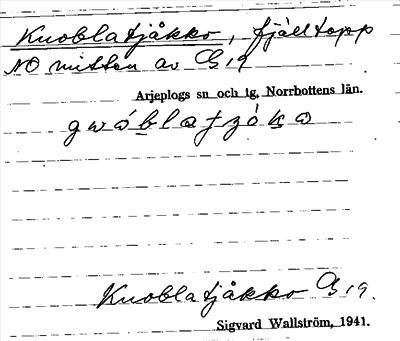 Knoblatjåkko, fjälltopp
NO mitten av G, 19
Arjeplogs sn och tg, Norrbottens län.
Knoblatjåkko G, 19.
Sigvard Wallström, 1941.